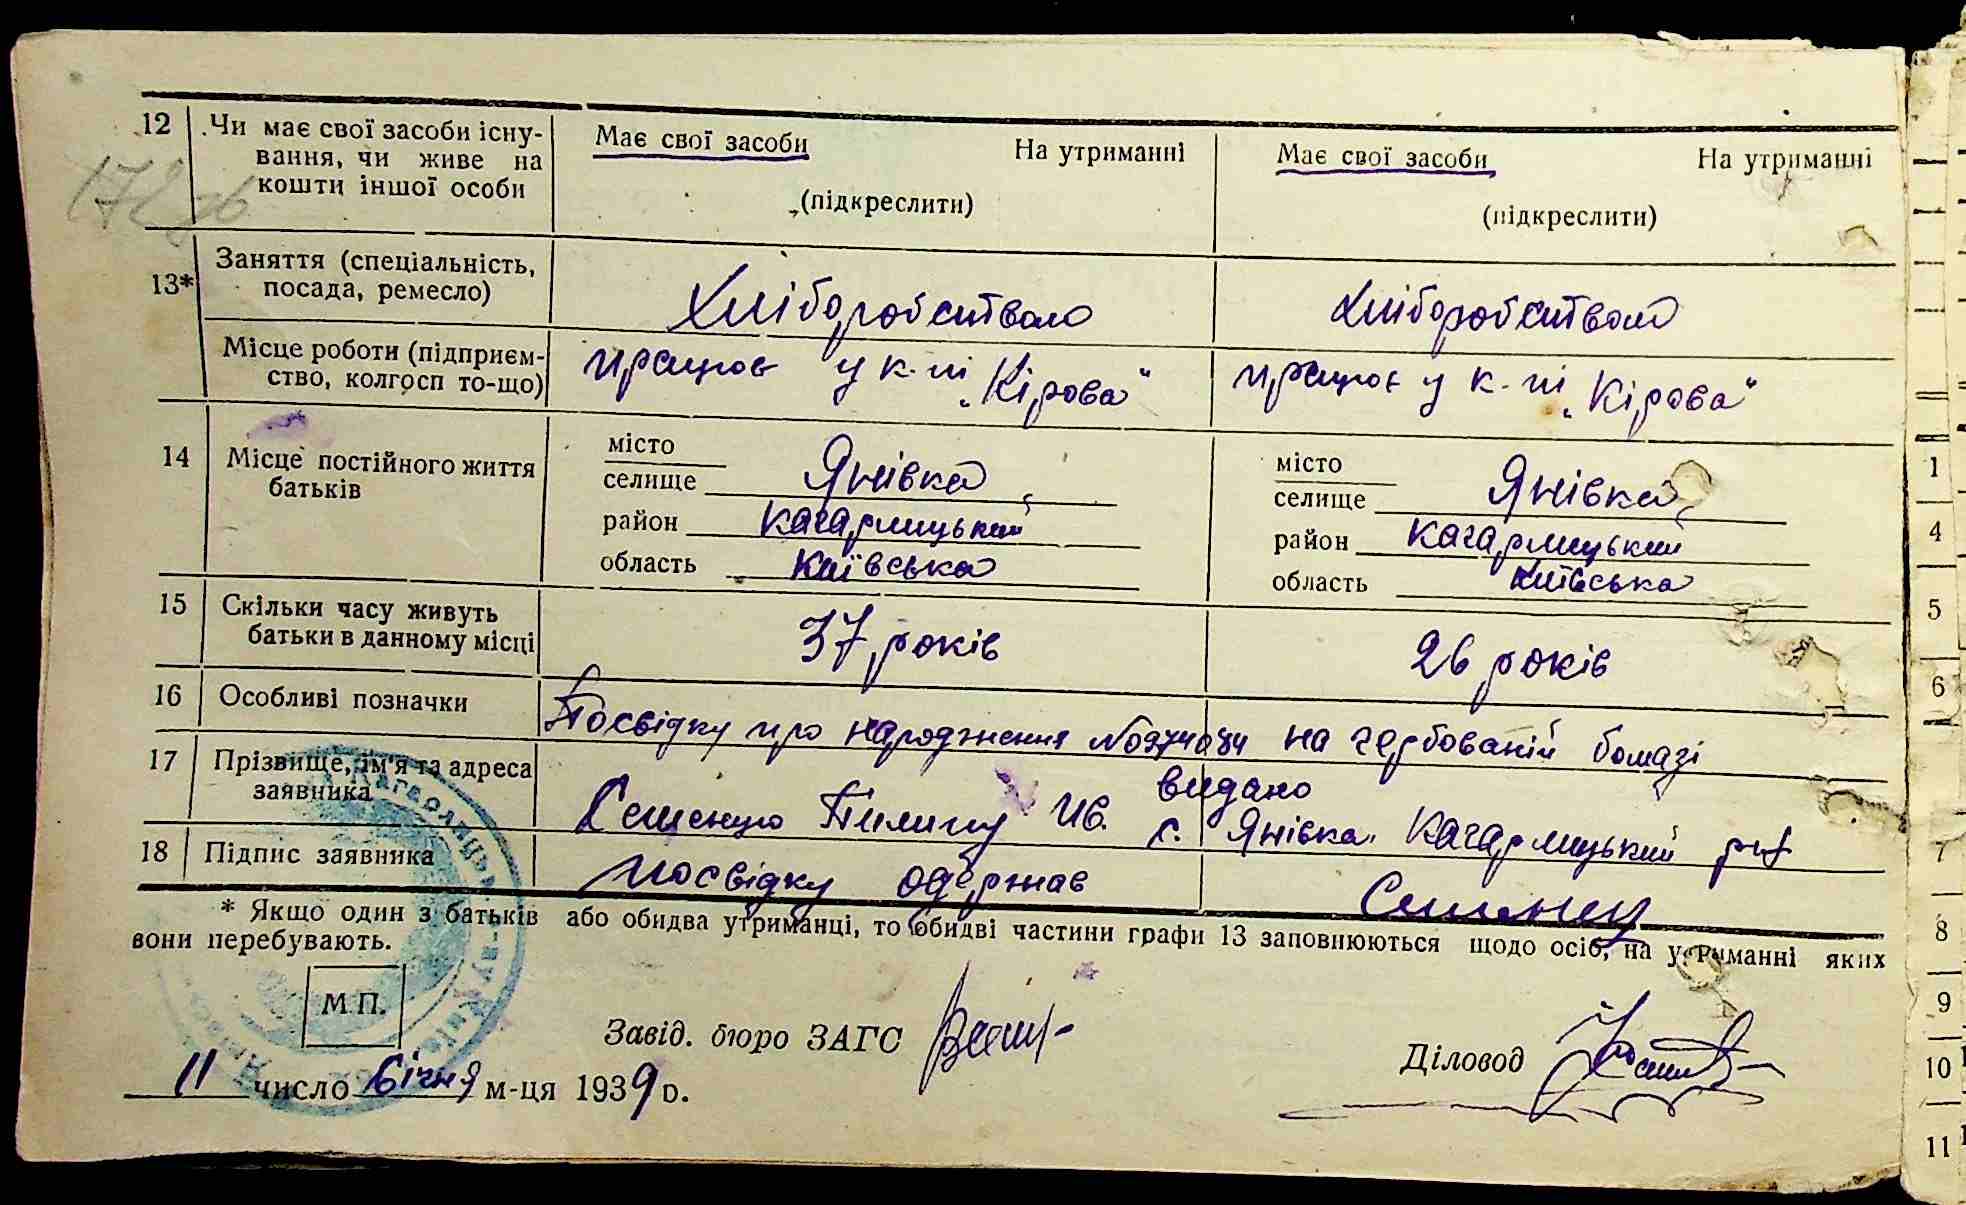 12 Чи має свої засоби існу- Має свої засоби На утриманні Має свої засоби На утриманні
вання, чи живе на
кошти іншої особи (підкреслити) (підкреслити)
13* Заняття (спеціальність,
посада, ремесло) Хліборобство Хліборобство
Місце роботи (підприєм- працює у к-пі „Кірова" працює у к-пі „Кірова"
ство, колгосп то-що)
14 Місце постійного життя
батьків
місто місто
селище Янівка селище Янівка
район Кагарлицький район Кагарлицький
область Київська область Київська
15 Скільки часу живуть
батьки в данному місці 37 років 26 років
16 Особливі позначки Посвідку про народження на гербованій бомазі
видано
17 Прізвище, ім'я та адреса
заявника Пилипу Ив. с. Янівка Кагарлицький
18 Підпис заявника посвідку одержав
* Якщо один з батьків або обидва утриманці, то обидві частини графи 13 заповнюються щодо осіб, на утриманні яких
вони перебувають.
М.П.
Завід. бюро ЗАГС
Діловод
11 число Січня м-ця 1939 р.
1
4
5
6
7
8
9
10
11